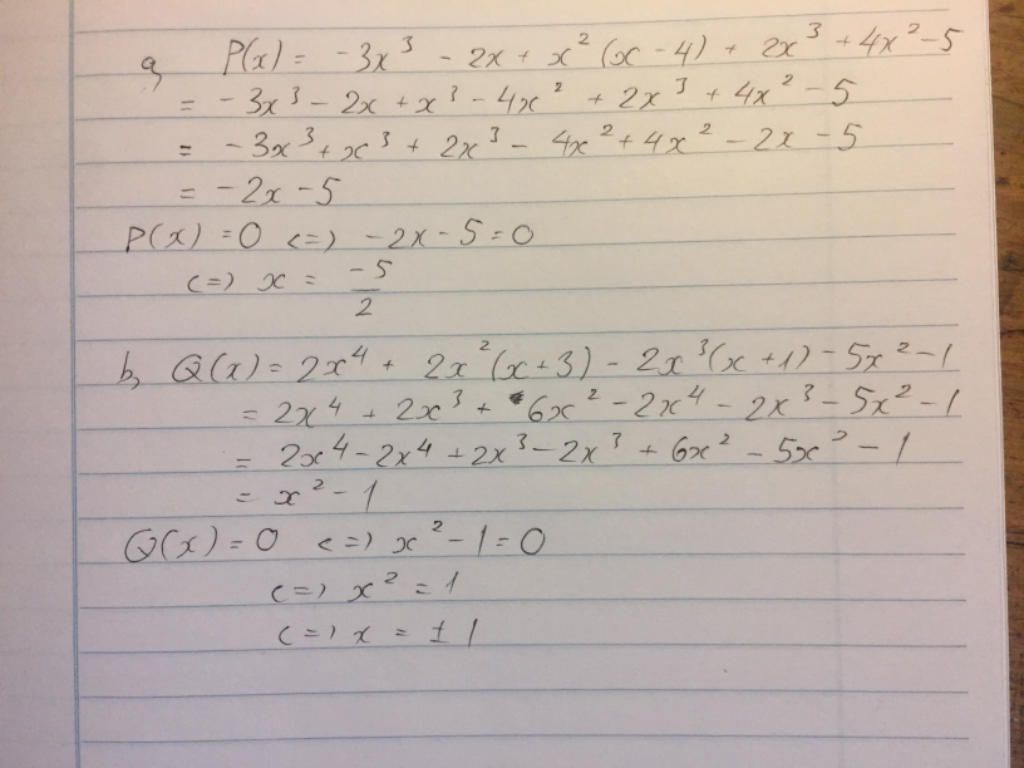 a, P(x) = -3x³ - 2x + x² (x - 4) + 2x³ + 4x² - 5
= -3x³ - 2x + x³ - 4x² + 2x³ + 4x² - 5
= -3x³ + x³ + 2x³ - 4x² + 4x² - 2x - 5
= -2x - 5
P(x) = 0 <=> -2x - 5 = 0
<=> x = -5/2
b, Q(x) = 2x⁴ + 2x² (x + 3) - 2x³ (x + 1) - 5x² - 1
= 2x⁴ + 2x³ + 6x² - 2x⁴ - 2x³ - 5x² - 1
= 2x⁴ - 2x⁴ + 2x³ - 2x³ + 6x² - 5x² - 1
= x² - 1
Q(x) = 0 <=> x² - 1 = 0
<=> x² = 1
<=> x = ± 1